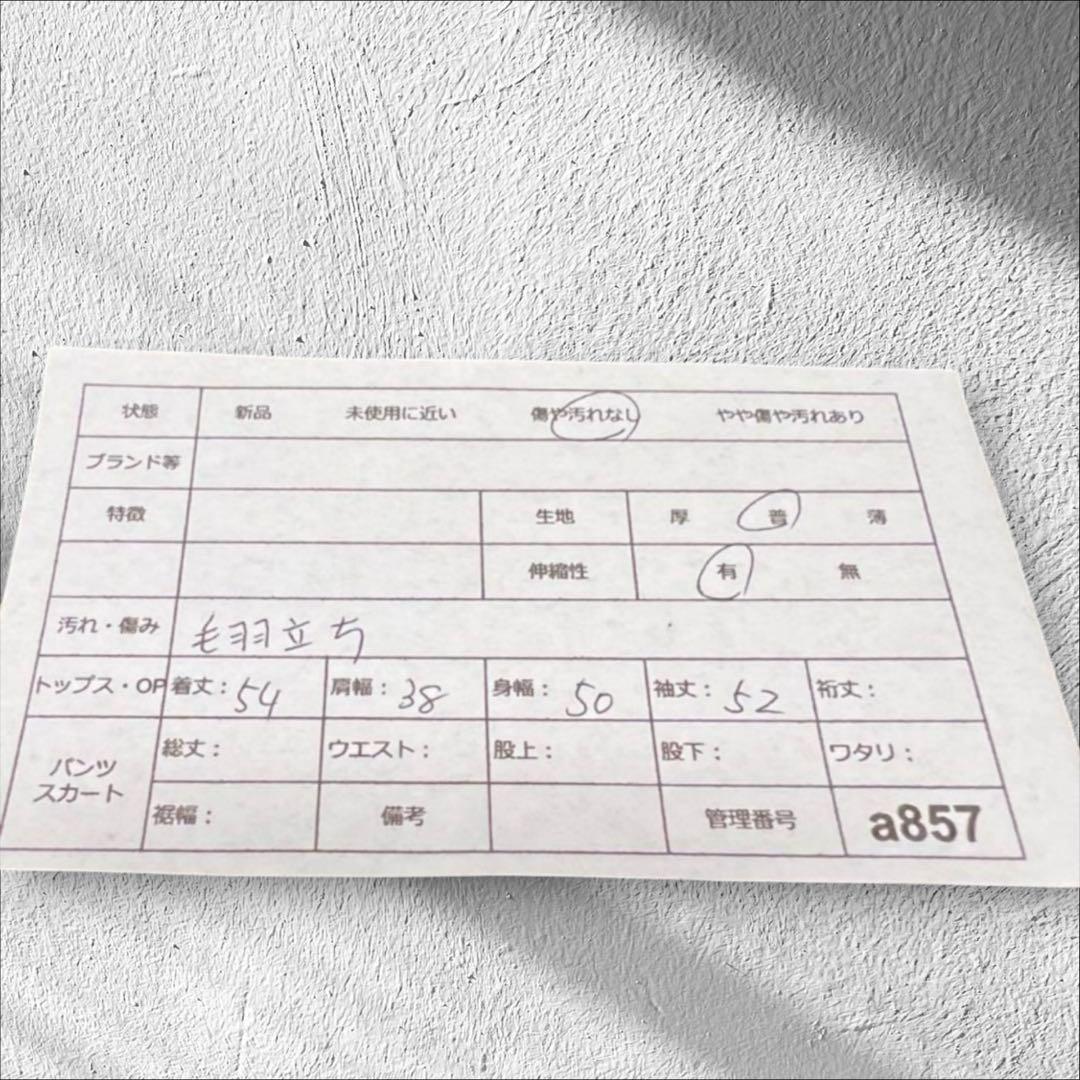 状態 新品 未使用に近い 傷や汚れなし やや傷や汚れあり
ブランド等
特徴 生地 厚 普 薄
伸縮性 有 無
汚れ・傷み 毛羽立ち
トップス・OP 着丈：54 肩幅：38 身幅：50 袖丈：52 裄丈：
パンツ スカート 総丈： ウエスト： 股上： 股下： ワタリ：
裾幅： 備考 管理番号 a857